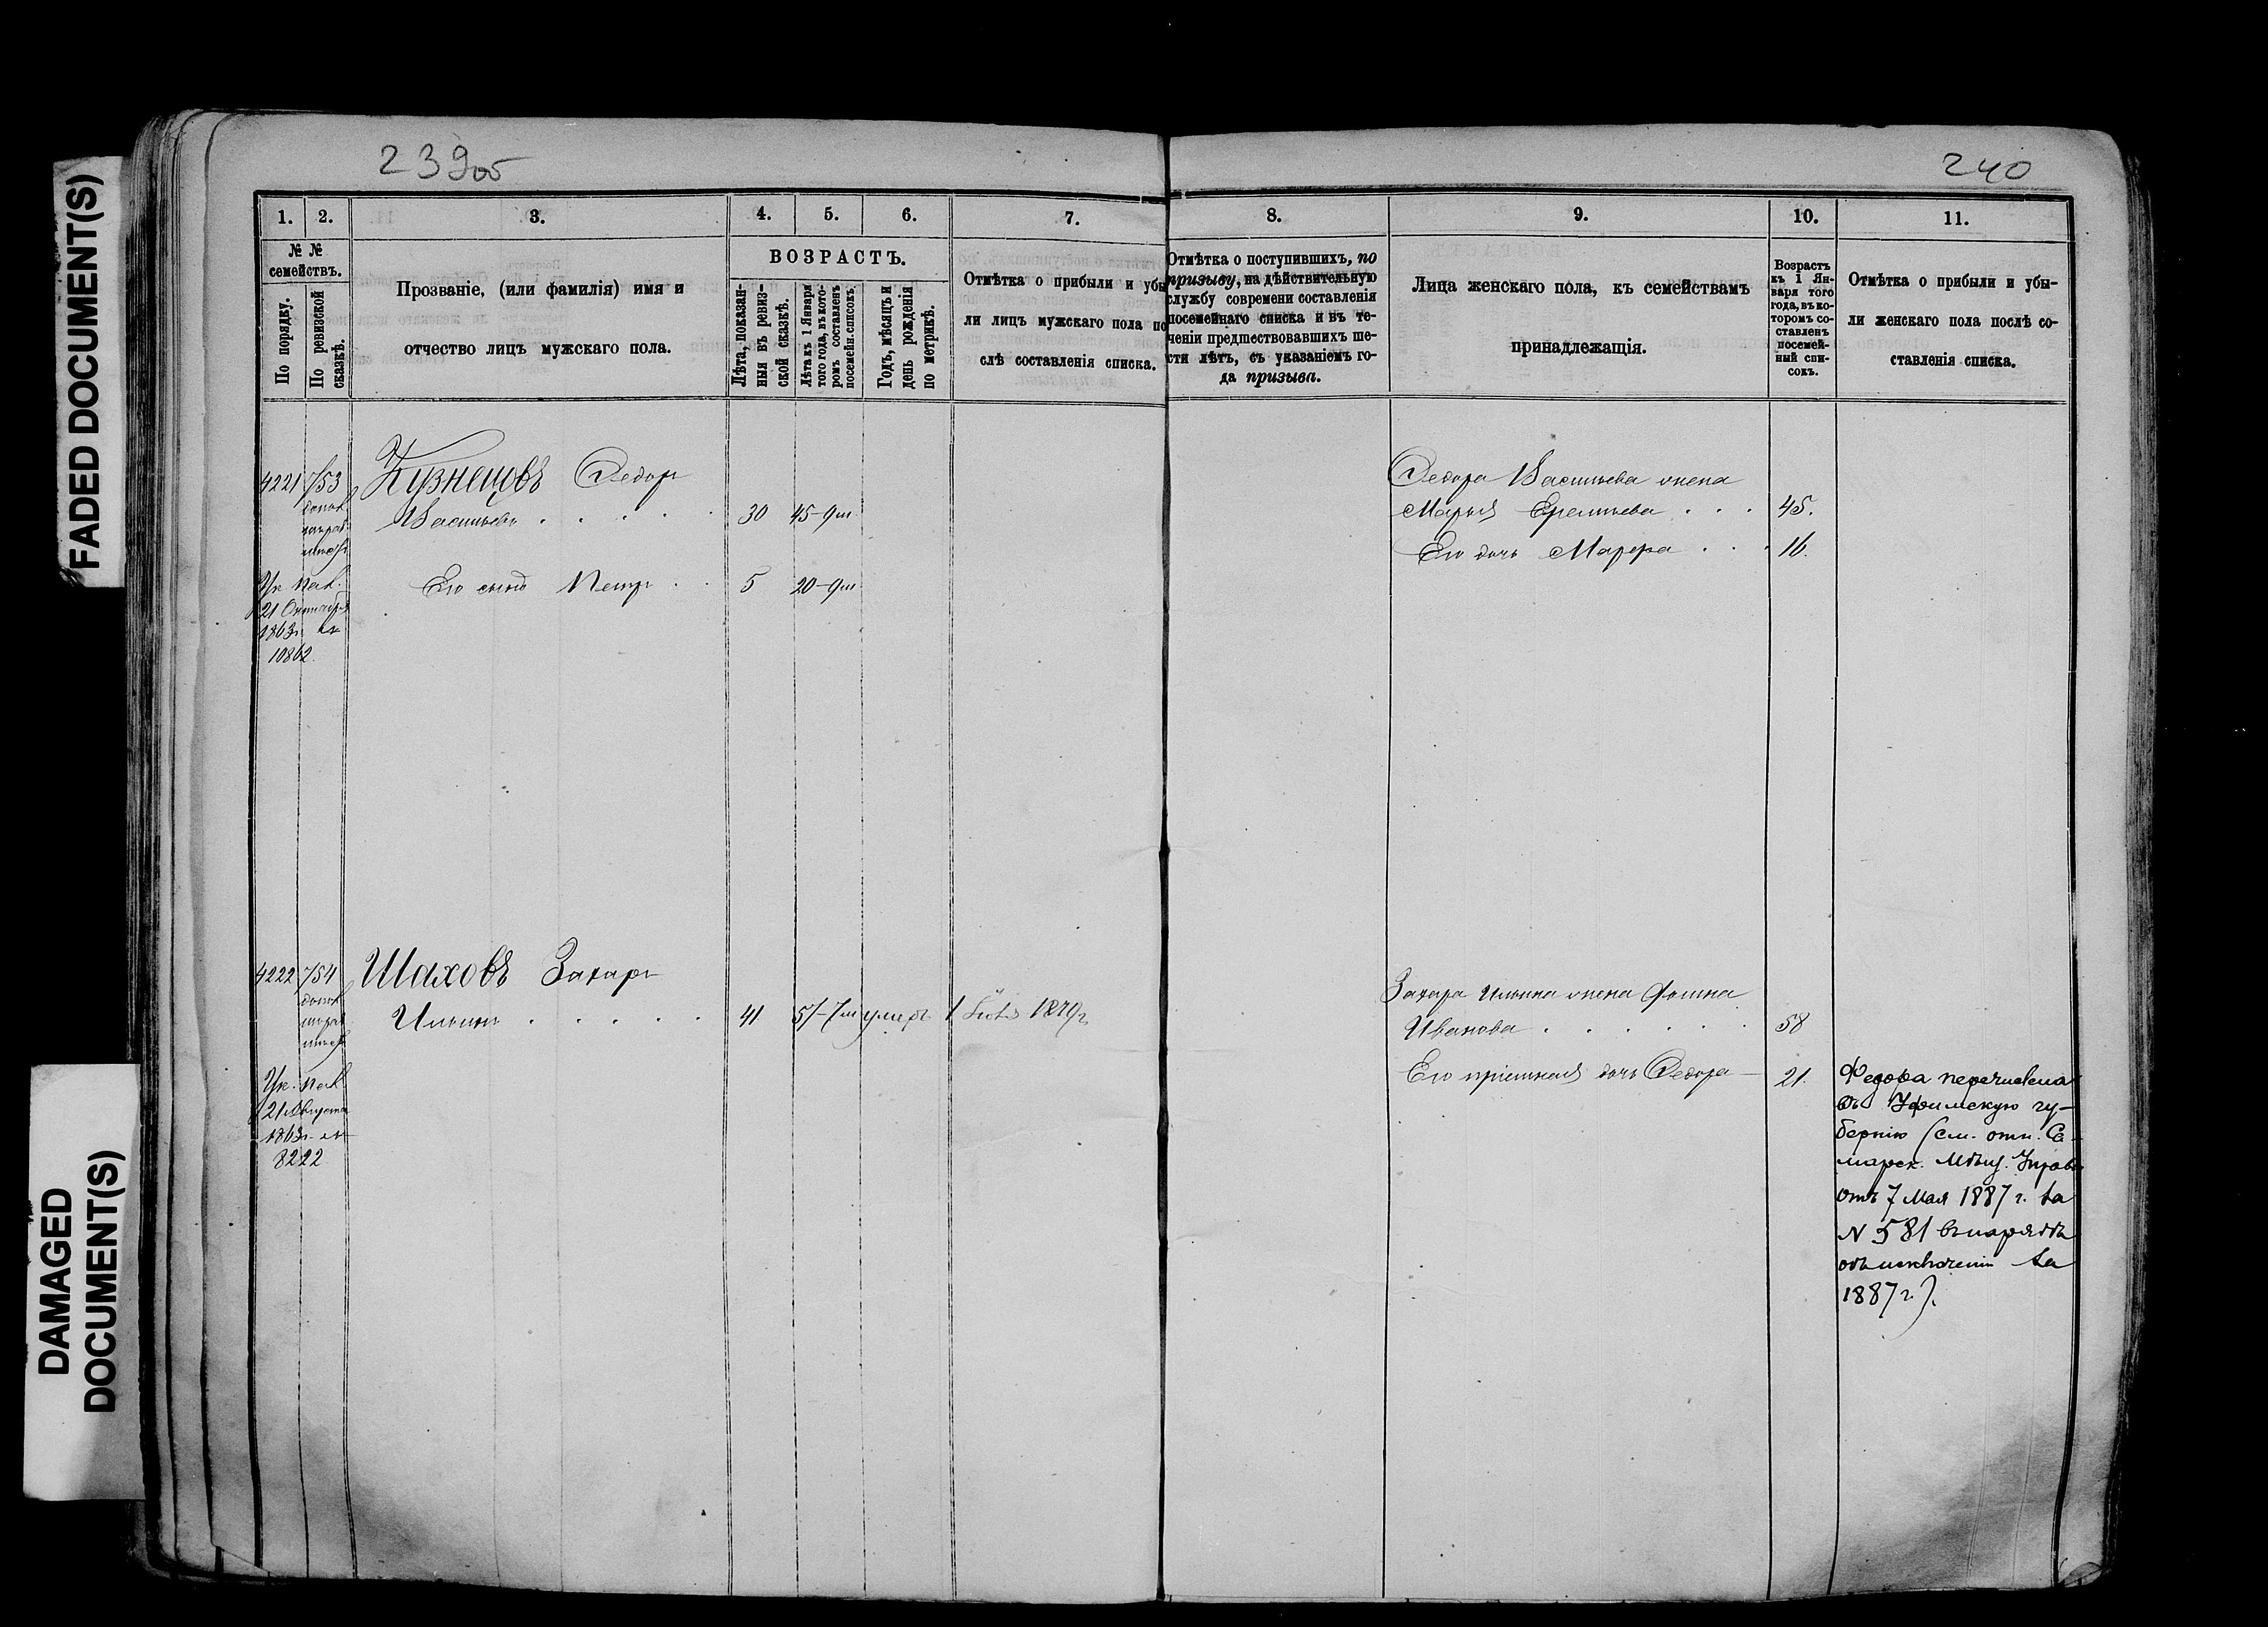 FADED DOCUMENT(S)
DAMAGED
DOCUMENT(S)
239об
240
1.
2.
3.
4.
5.
6.
7.
8.
9.
10.
11.
№ №
семействъ.
По порядку.
По ревизской
сказкѣ.
Прозваніе, (или фамилія) имя и
отчество лицъ мужскаго пола.
ВОЗРАСТЪ.
Лѣта, показан-
ныя въ ревиз-
ской сказкѣ.
Лѣта къ 1 Января
того года, въ кото-
ромъ составленъ
посемейн. списокъ.
Годъ, мѣсяцъ и
день рожденія
по метрикѣ.
Отмѣтка о прибыли и убы
ли лицъ мужскаго пола по
слѣ составленія списка.
Отмѣтка о поступившихъ, по
призыву, на дѣйствительную
службу современи составленія
посемейнаго списка и въ те-
ченіи предшествовавшихъ ше-
сти лѣтъ, съ указаніемъ го-
да призыва.
Лица женскаго пола, къ семействамъ
принадлежащія.
Возрастъ
къ 1 Ян-
варя того
года, въ ко-
торомъ со-
ставленъ
посемей-
ный спи-
сокъ.
Отмѣтка о прибыли и убы-
ли женскаго пола послѣ со-
ставленія списка.
4221 753 Кузнецовъ Федоръ
Васильевъ . . . . . 30 45-9м
Его сынъ Петръ . . 5 20-9м
Ук. Пал.
21 Октября
1863г. за
10862.
Федора Васильева жена
Марья Еремѣева . . . 45.
Его дочь Марфа . . . 16.
4222 754 Шаховъ Захаръ
Ильинъ . . . . . 41 57-7м умеръ 1 1879г.
Ук. Пал.
21 Августа
1863г. за
8222
Захара Ильина жена Фотина
Иванова . . . . . . 58
Его пріемная дочь Федора 21.
Федора перечислена
въ Уфимскую гу-
бернію (см. отн. Са-
марск. Мѣщ. Управ.
отъ 7 Мая 1887 г. за
N 581 въ нарядѣ
объ исключеніи за
1887 г.).